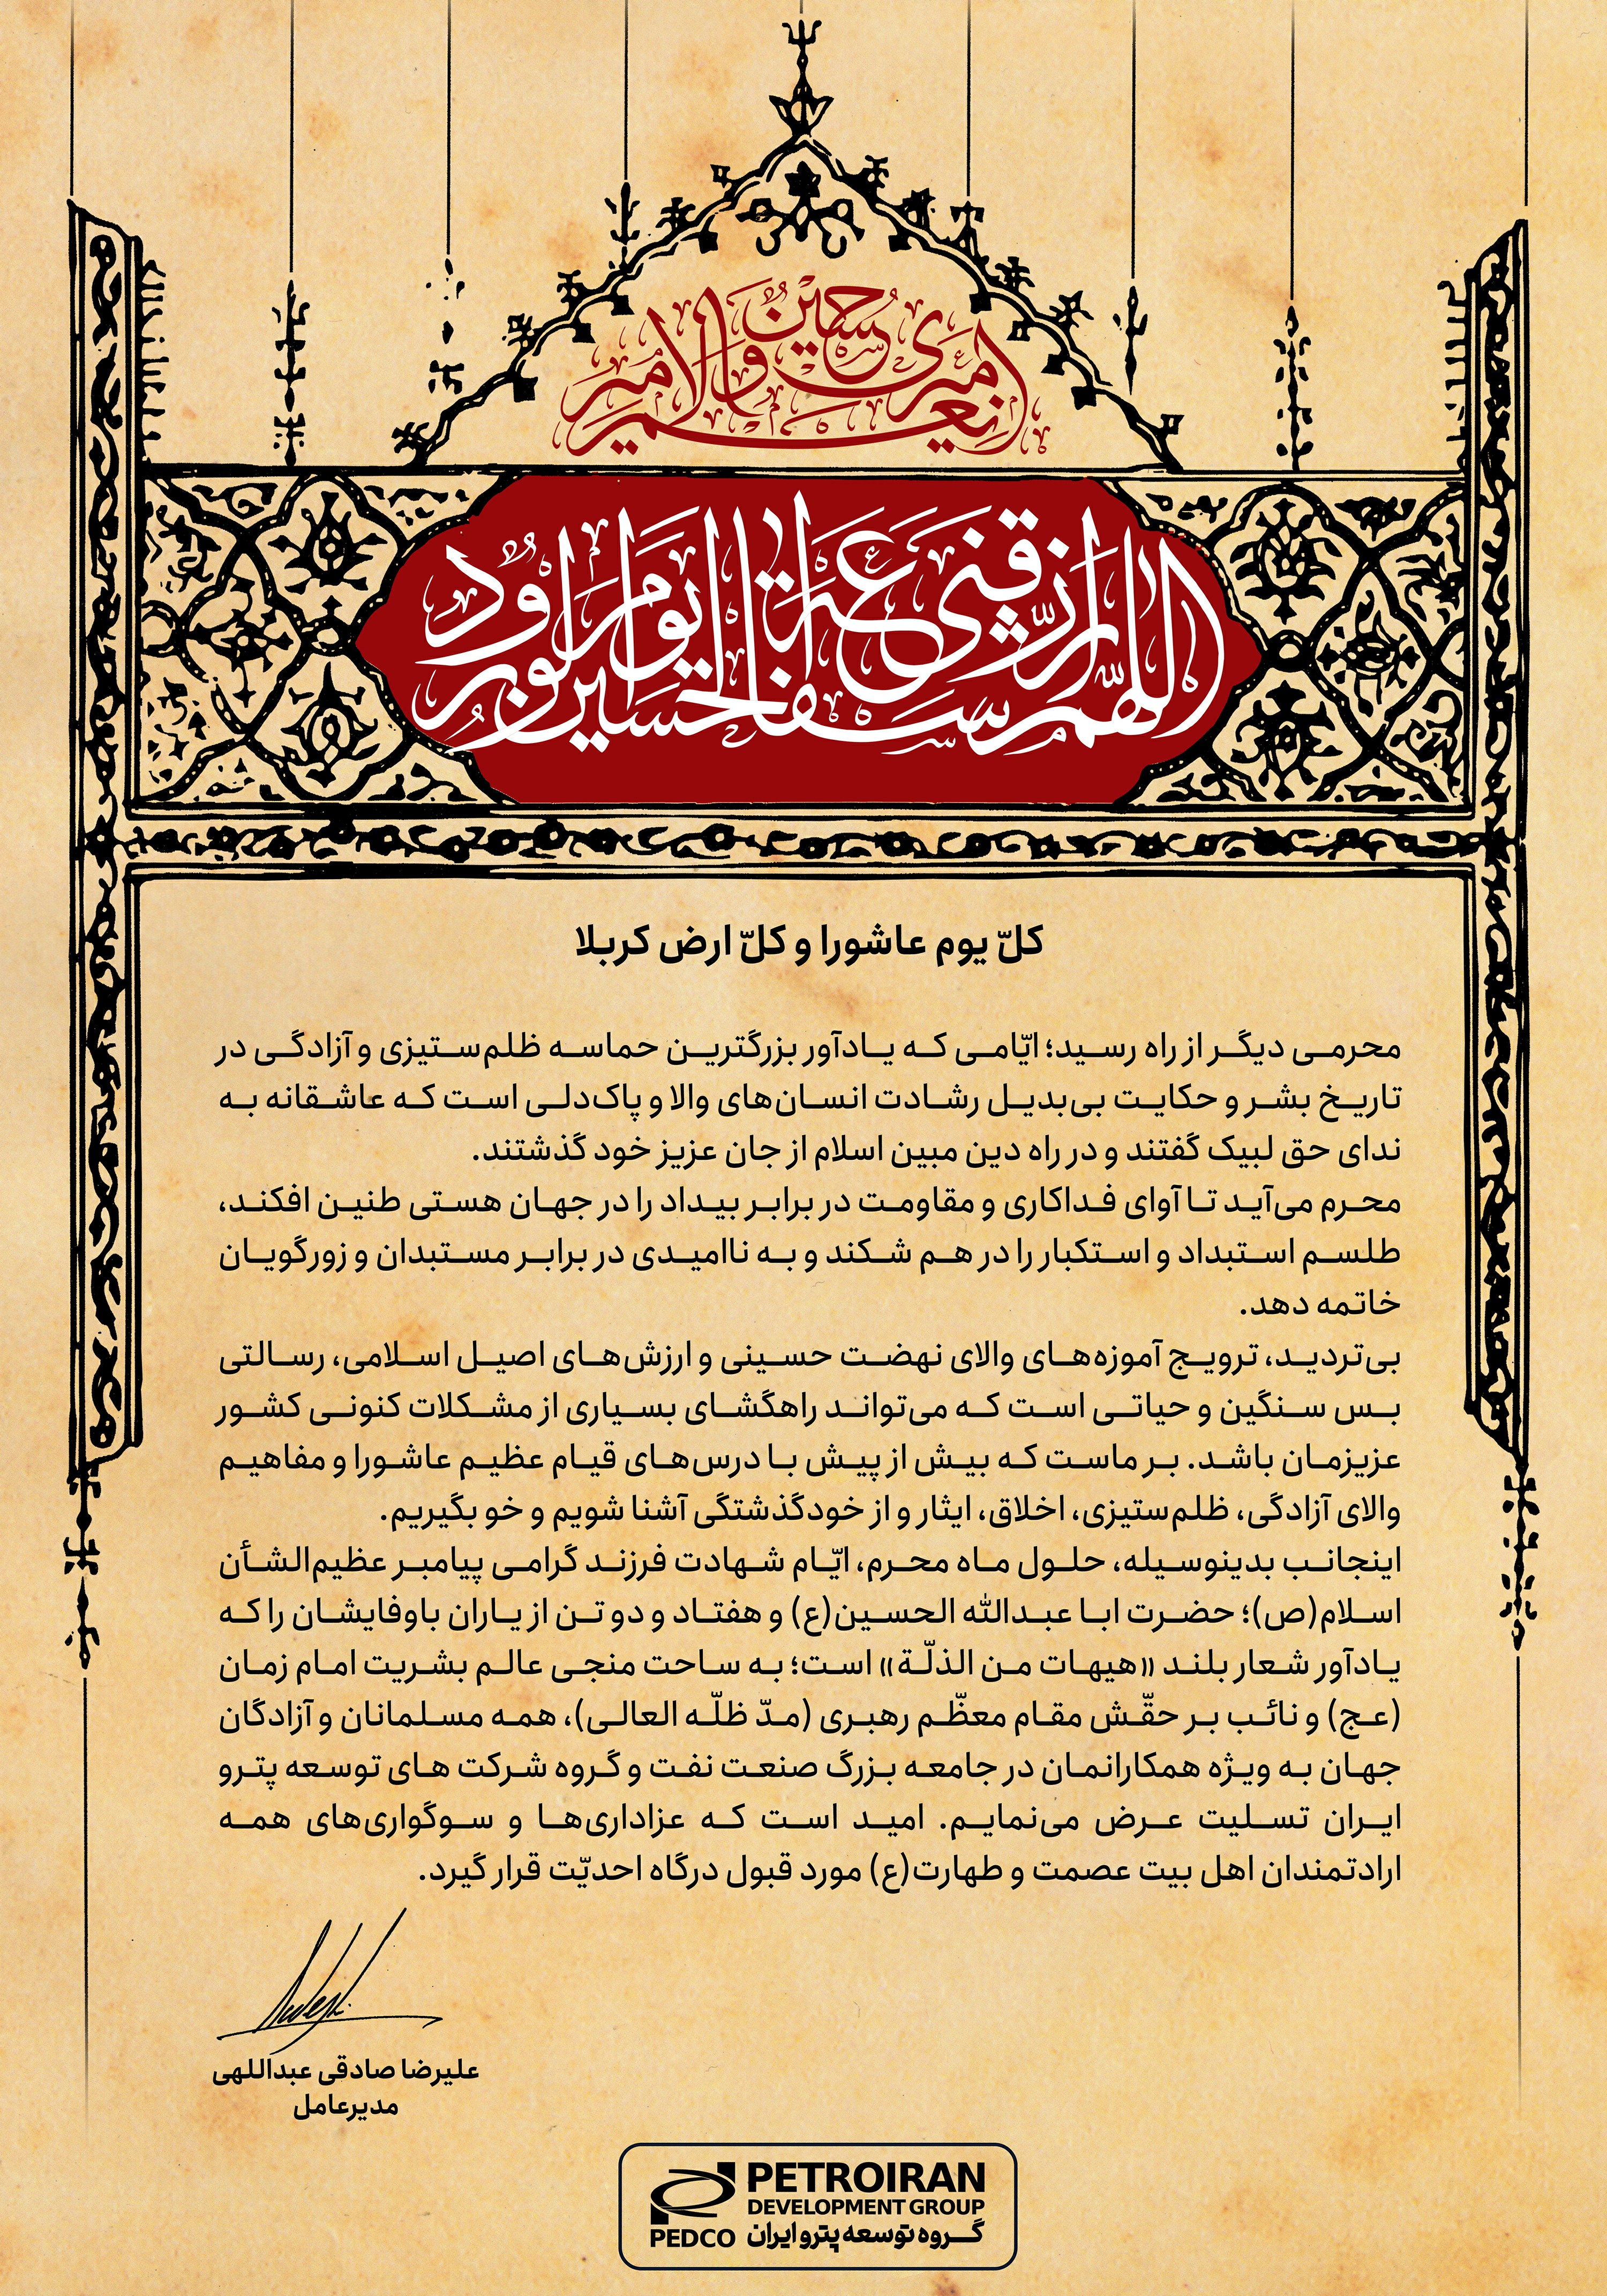 امیری حسین و نعم الامیر
اللهم ارزقنی شفاعة الحسین یوم الورود
کلّ یوم عاشورا و کلّ ارض کربلا
محرمی دیگر از راه رسید؛ ایّامی که یادآور بزرگترین حماسه ظلم‌ستیزی و آزادگی در
تاریخ بشر و حکایت بی‌بدیل رشادت انسان‌های والا و پاک‌دلی است که عاشقانه به
ندای حق لبیک گفتند و در راه دین مبین اسلام از جان عزیز خود گذشتند.
محرم می‌آید تا آوای فداکاری و مقاومت در برابر بیداد را در جهان هستی طنین افکند،
طلسم استبداد و استکبار را در هم شکند و به ناامیدی در برابر مستبدان و زورگویان
خاتمه دهد.
بی‌تردید، ترویج آموزه‌های والای نهضت حسینی و ارزش‌های اصیل اسلامی، رسالتی
بس سنگین و حیاتی است که می‌تواند راهگشای بسیاری از مشکلات کنونی کشور
عزیزمان باشد. بر ماست که بیش از پیش با درس‌های قیام عظیم عاشورا و مفاهیم
والای آزادگی، ظلم‌ستیزی، اخلاق، ایثار و از خودگذشتگی آشنا شویم و خو بگیریم.
اینجانب بدینوسیله، حلول ماه محرم، ایّام شهادت فرزند گرامی پیامبر عظیم‌الشأن
اسلام(ص)؛ حضرت ابا عبدالله الحسین(ع) و هفتاد و دو تن از یاران باوفایشان را که
یادآور شعار بلند «هیهات من الذلّة» است؛ به ساحت منجی عالم بشریت امام زمان
(عج) و نائب بر حقّش مقام معظّم رهبری (مدّ ظلّه العالی)، همه مسلمانان و آزادگان
جهان به ویژه همکارانمان در جامعه بزرگ صنعت نفت و گروه شرکت های توسعه پترو
ایران تسلیت عرض می‌نمایم. امید است که عزاداری‌ها و سوگواری‌های همه
ارادتمندان اهل بیت عصمت و طهارت(ع) مورد قبول درگاه احدیّت قرار گیرد.
علیرضا صادقی عبداللهی
مدیرعامل
PETROIRAN
DEVELOPMENT GROUP
PEDCO گروه توسعه پترو ایران